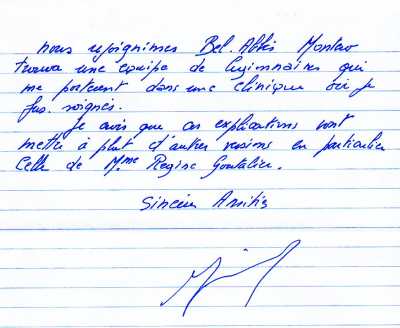 nous rejoignimes Bel. Abbès Montero
trouva une équipe de légionnaires qui
me portèrent dans une clinique où je
fus soigné.
Je crois que ces explications vont
mettre à plat d'autres versions en particulier
celle de Mme Régine Goutalier.
Sincères Amitiés